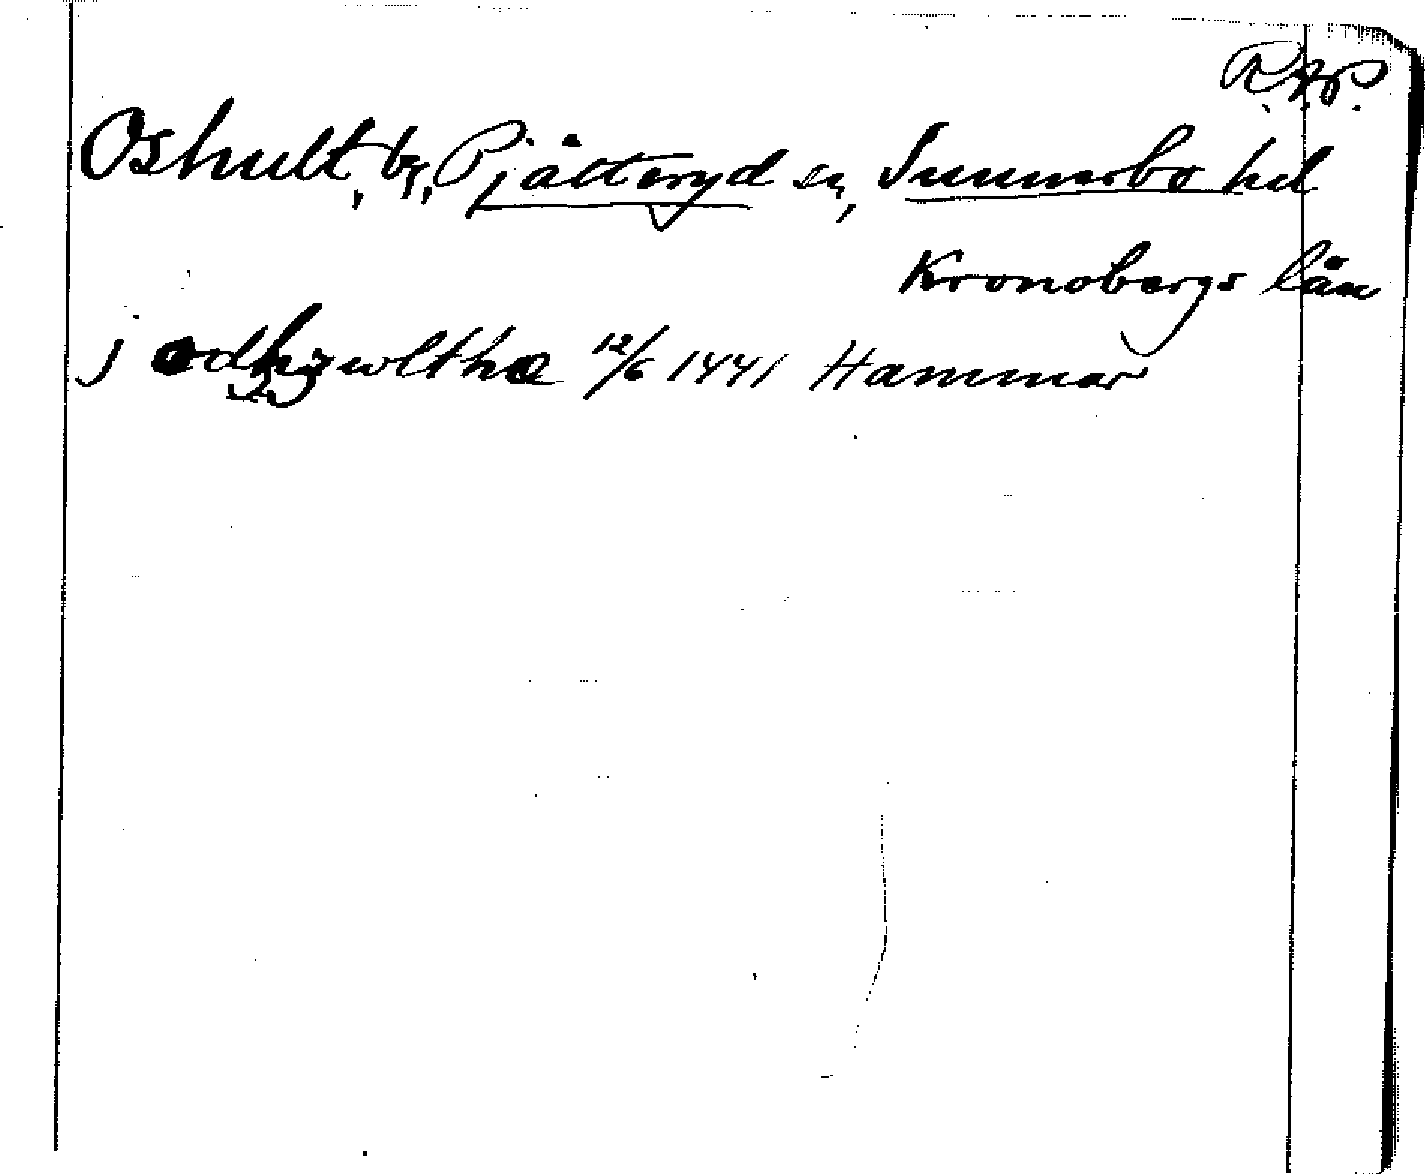 R.A.P.
Oshult, by, Pjätteryd sn, Sunnerbo hd
Kronobergs län
j odhzwltha 12/6 1441 Hammar